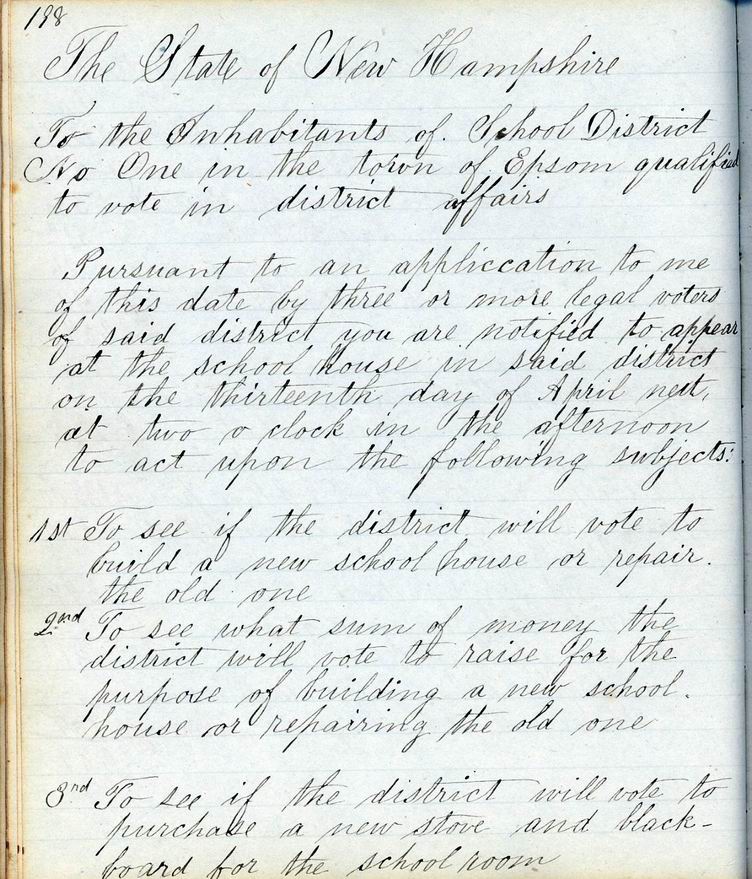 198
The State of New Hampshire
To the Inhabitants of. School District
No One in the town of Epsom qualified
to vote in district affairs
Pursuant to an appliccation to me
of this date by three or more legal voters
of said district you are notified to appear
at the school house in said district
on the thirteenth day of April next,
at two o clock in the afternoon
to act upon the following subjects:
1st To see if the district will vote to
build a new school house or repair.
the old one
2nd To see what sum of money the
district will vote to raise for the
purpose of building a new school.
house or repairing the old one
3rd To see if the district will vote to
purchase a new stove and black-
board for the school room